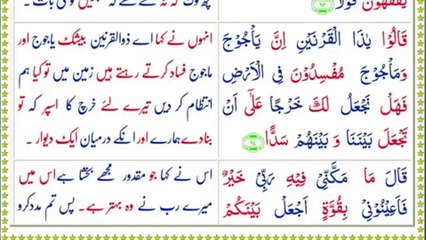 يَفْقَهُوْنَ قَوْلًا ﴿٩٣﴾
قَالُوْا يٰذَا الْقَرْنَيْنِ اِنَّ يَاْجُوْجَ
وَمَاْجُوْجَ مُفْسِدُوْنَ فِي الْاَرْضِ
فَهَلْ نَجْعَلُ لَكَ خَرْجًا عَلٰٓى اَنْ
تَجْعَلَ بَيْنَنَا وَ بَيْنَهُمْ سَدًّا ﴿٩٤﴾
انہوں نے کہا اے ذوالقرنین بیشک یاجوج اور
ماجوج فساد کرتے رہتے ہیں زمین میں تو کیا ہم
انتظام کر دیں تیرے لئے خرچ کا اسپر کہ تو
بنادے ہمارے اور انکے درمیان ایک دیوار ۔
قَالَ مَا مَكَّنِّيْ فِيْهِ رَبِّيْ خَيْرٌ
فَاَعِيْنُوْنِيْ بِقُوَّةٍ اَجْعَلْ بَيْنَكُمْ
اس نے کہا جو مقدور مجھے بخشا ہے اس میں
میرے رب نے وہ بہتر ہے۔ پس تم مدد کرو